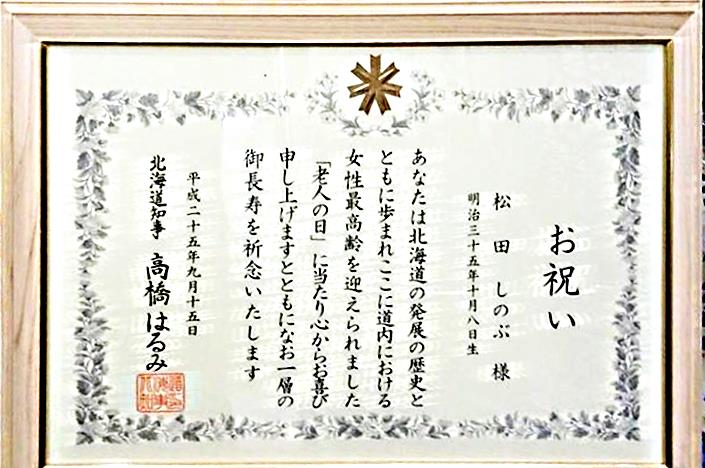 お祝い
松田 しのぶ 様
明治三十五年十月八日生
あなたは北海道の発展の歴史と
ともに歩まれここに道内における
女性最高齢を迎えられました
「老人の日」に当たり心からお喜び
申し上げますとともになお一層の
御長寿を祈念いたします
平成二十五年九月十五日
北海道知事 高橋はるみ